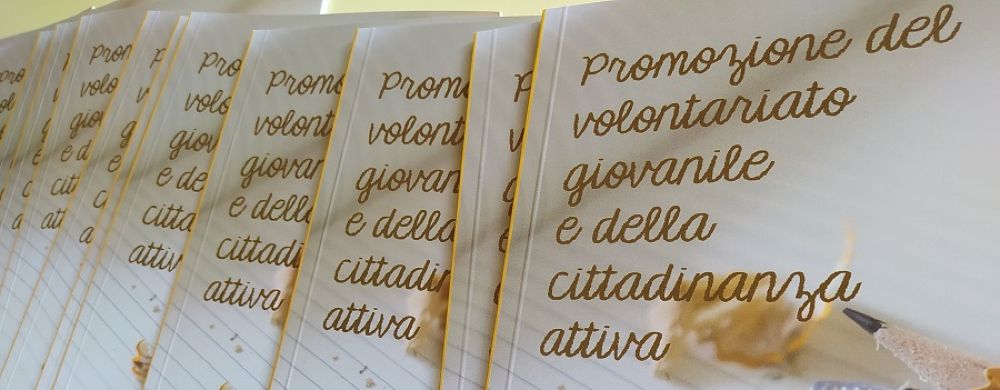 Promozione del
volontariato
giovanile
e della
cittadinanza
attiva